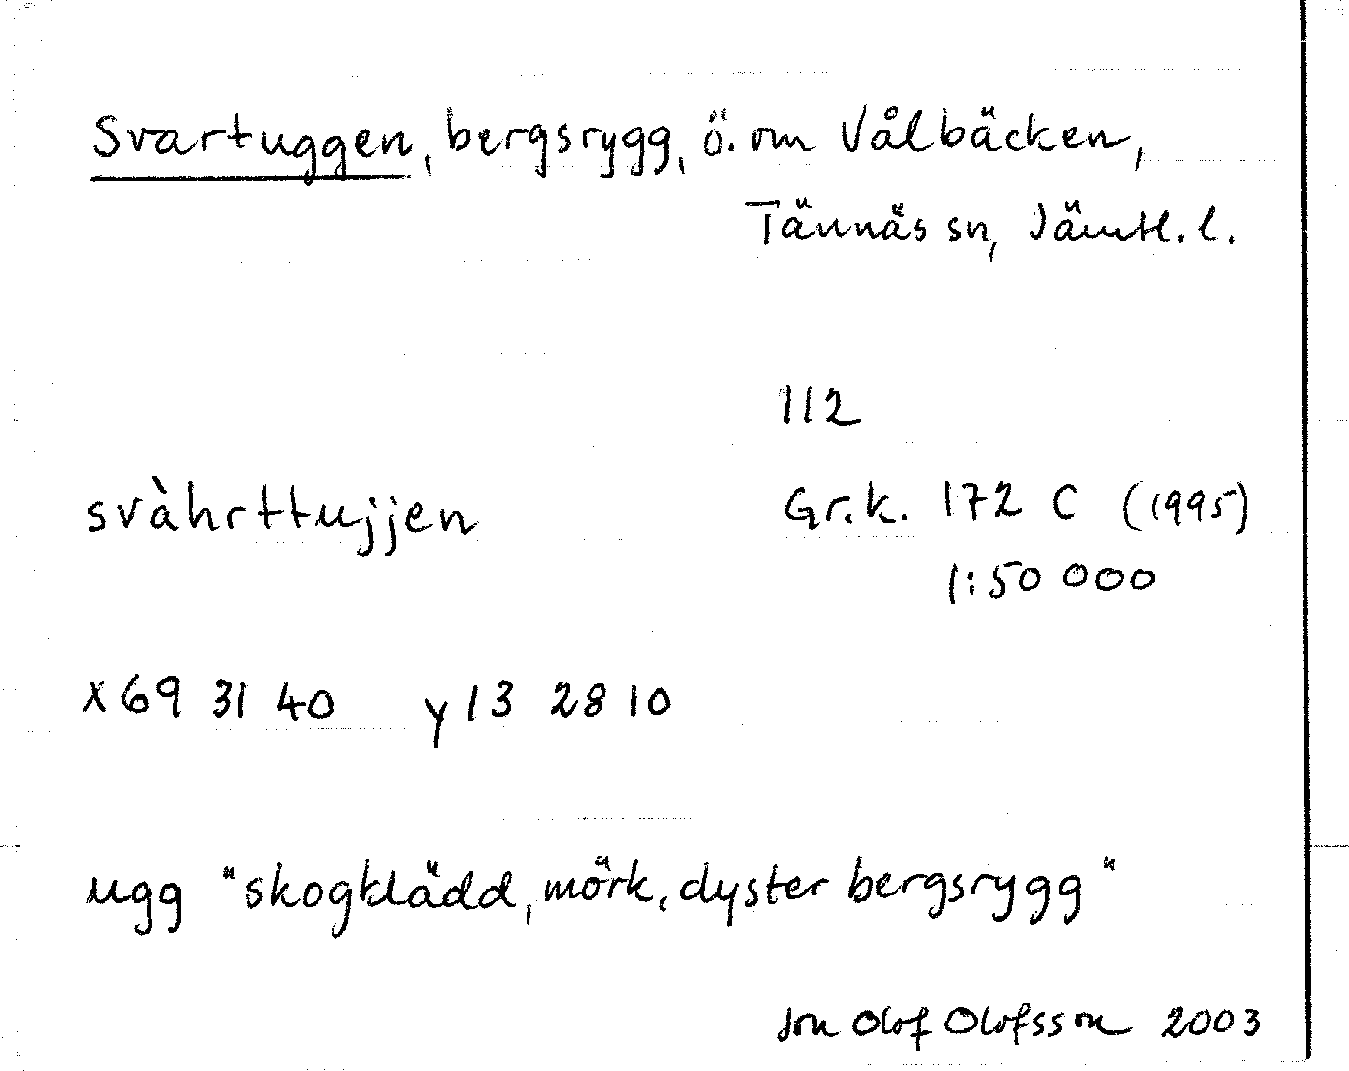 Svartuggen, bergsrygg, ö. om Vålbäcken,
Tännäs sn, Jämtl. l.
112
svàhrttujjen
Gr.k. 172 C (1995)
1:50 000
x 69 31 40 y 13 28 10
ugg "skogklädd, mörk, dyster bergsrygg"
Jon Olof Olofsson 2003